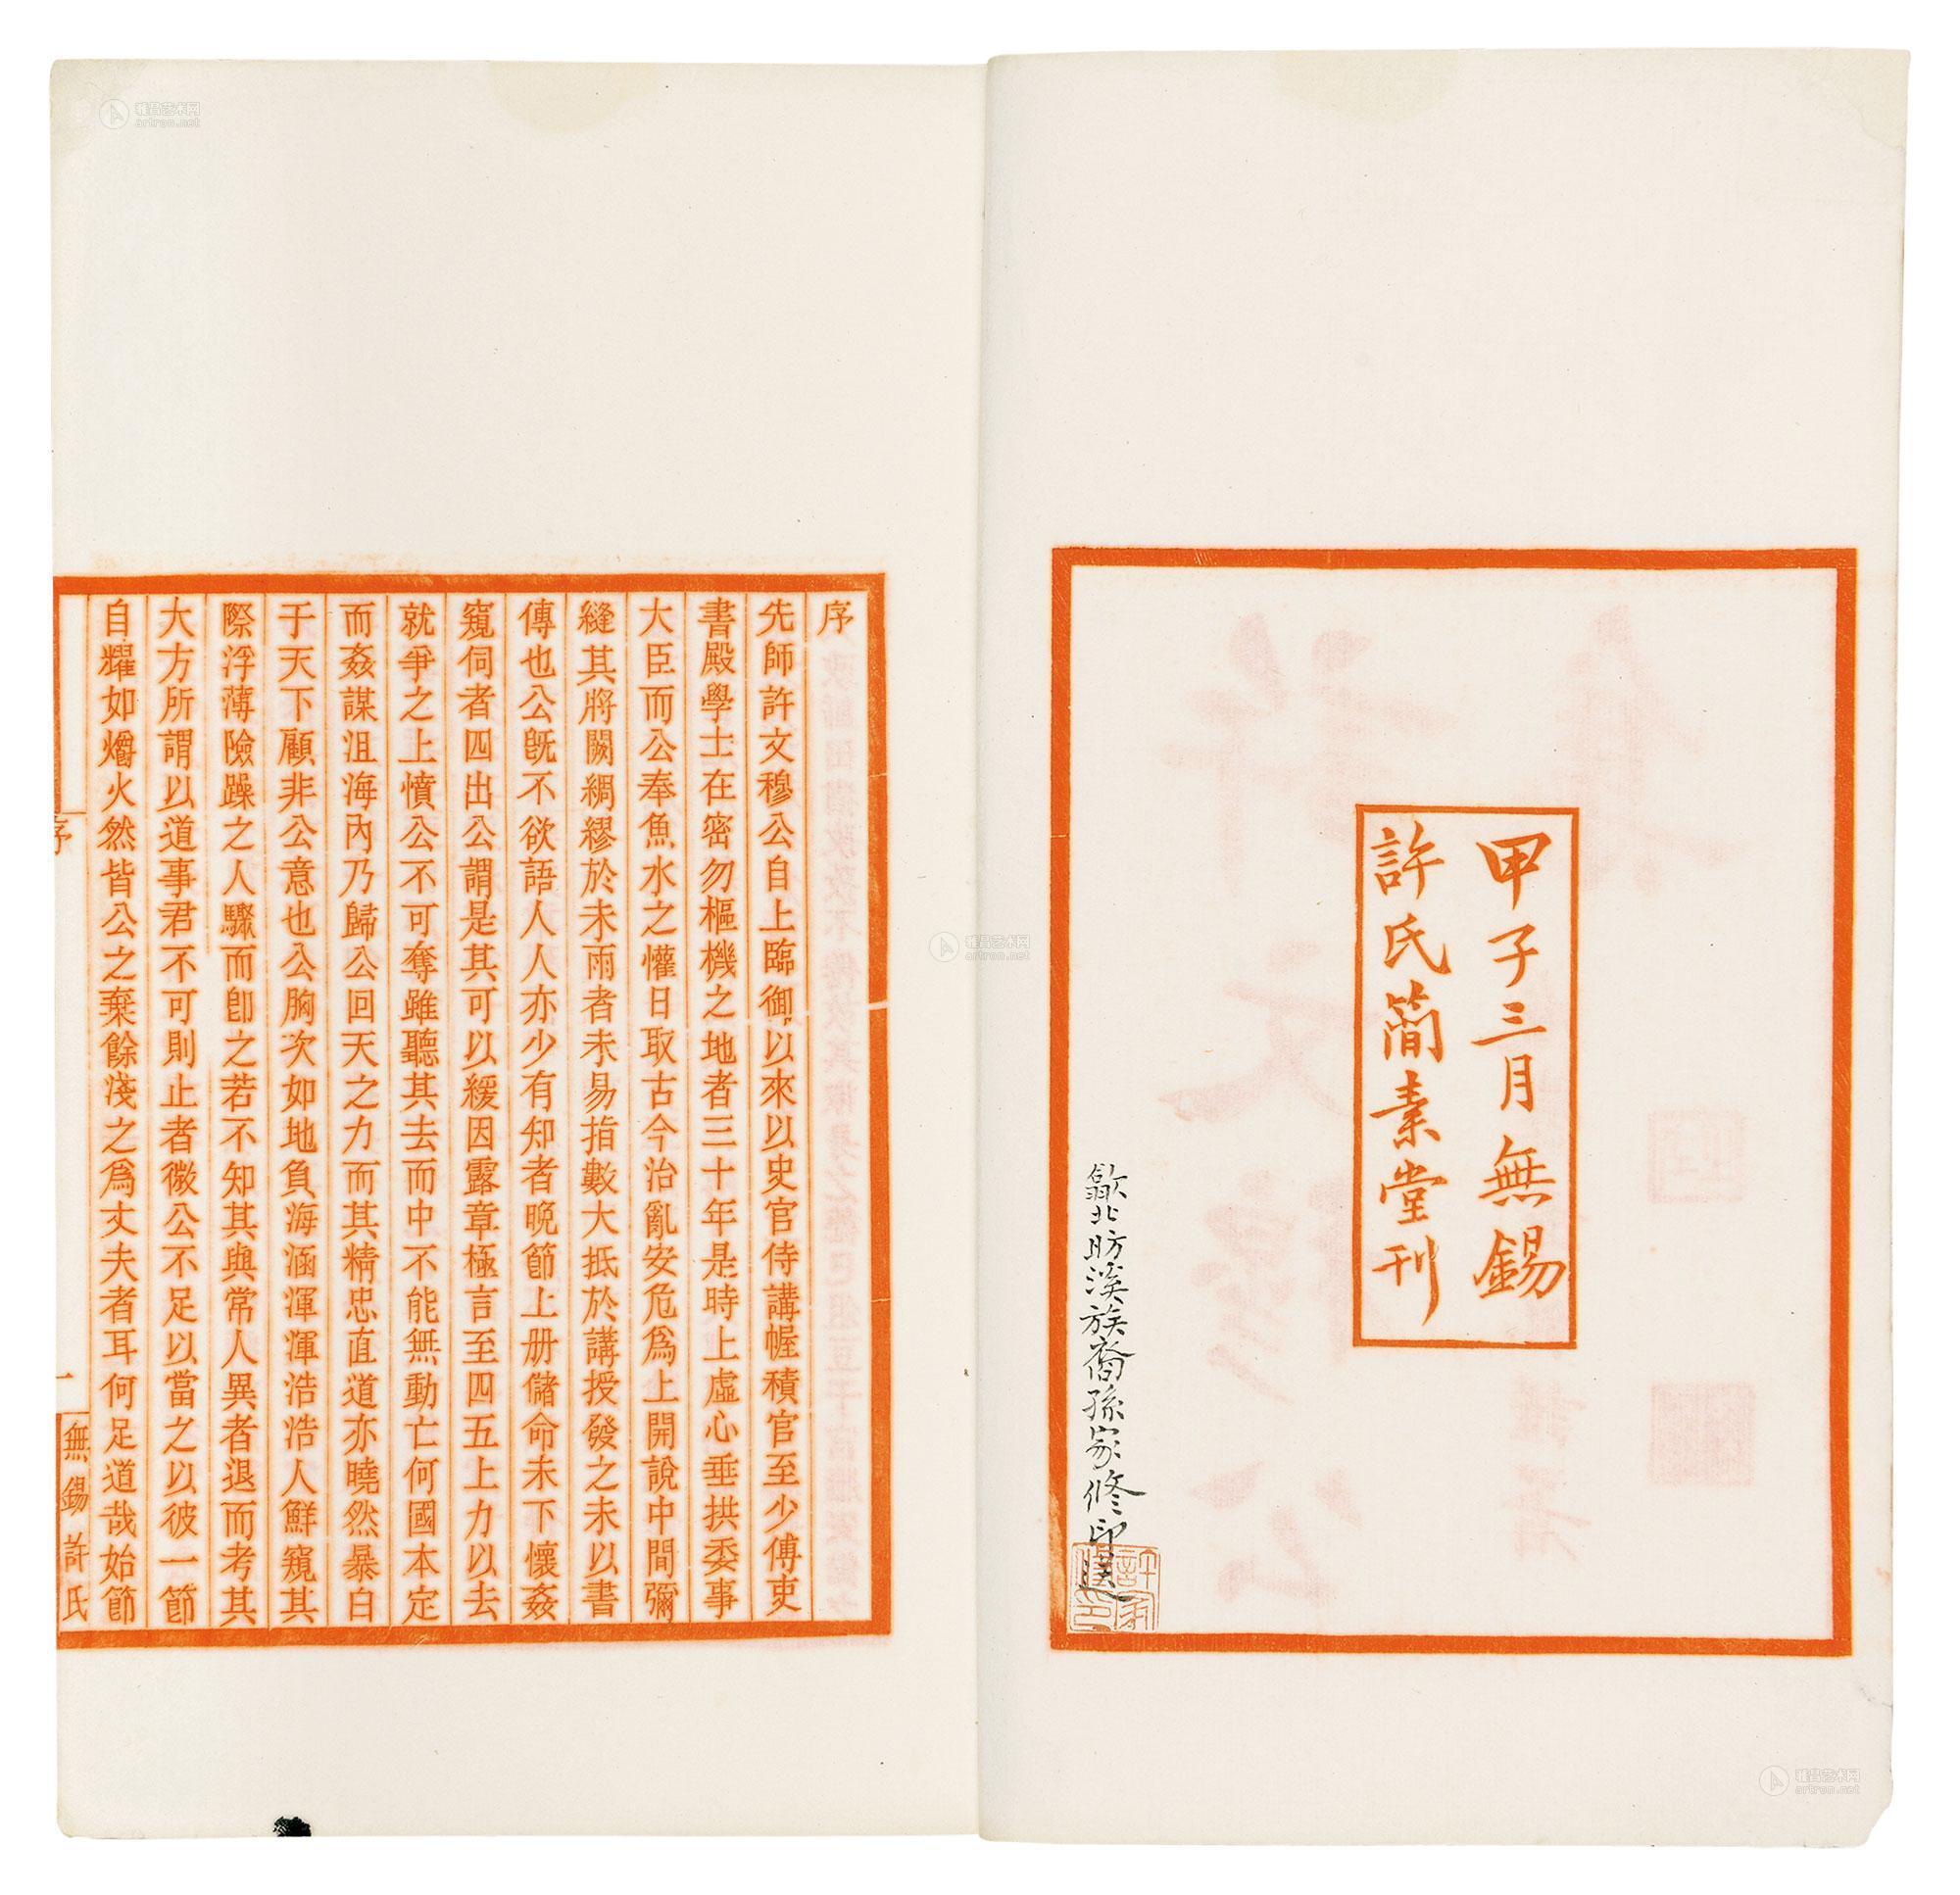 甲子三月無錫
許氏簡素堂刊
歙北昉溪族裔孫家修印送
序
先師許文穆公自上臨御以來以史官侍講幄積官至少傅吏
書殿學士在密勿樞機之地者三十年是時上虛心垂拱委事
大臣而公奉魚水之懽日取古今治亂安危為上開說中間彌
縫其將闕綢繆於未雨者未易指數大抵於講授發之未以書
傳也公旣不欲語人人亦少有知者晚節上册儲命未下懷姦
窺伺者四出公謂是其可以緩因露章極言至四五上力以去
就爭之上憤公不可奪雖聽其去而中不能無動亡何國本定
而姦謀沮海內乃歸公回天之力而其精忠直道亦曉然暴白
于天下顧非公意也公胸次如地負海涵渾渾浩浩人鮮窺其
際浮薄險躁之人驟而卽之若不知其與常人異者退而考其
大方所謂以道事君不可則止者微公不足以當之以彼一節
自耀如爝火然皆公之棄餘淺之爲丈夫者耳何足道哉始節
序
一
無錫許氏
雅昌艺术网
artron.net
雅昌艺术网
artron.net
雅昌艺术网
artron.net